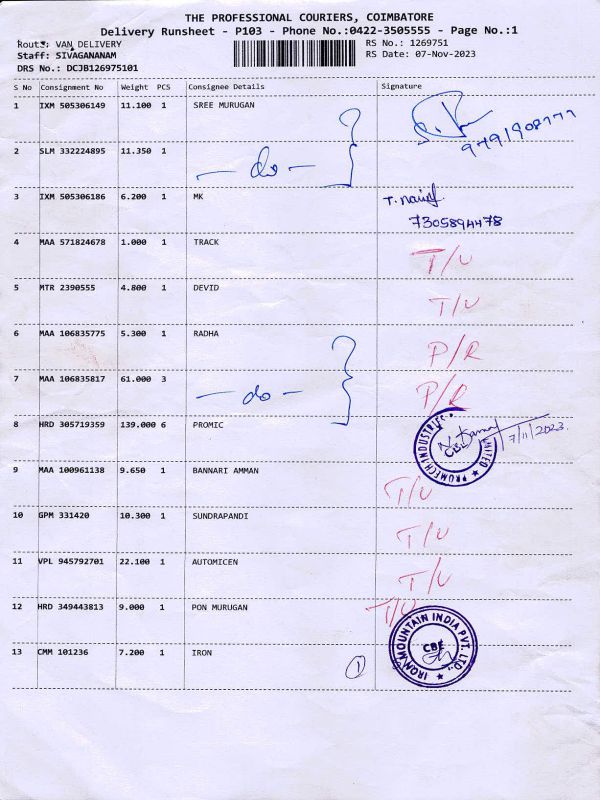 THE PROFESSIONAL COURIERS, COIMBATORE
Delivery Runsheet - P103 - Phone No.:0422-3505555 - Page No.:1
Route: VAN DELIVERY
RS No.: 1269751
Staff: SIVAGANANAM
RS Date: 07-Nov-2023
DRS No.: DCJB126975101
S No Consignment No Weight PCS Consignee Details Signature
1 IXM 505306149 11.100 1 SREE MURUGAN
2 SLM 332224895 11.350 1
- do -
3 IXM 505306186 6.200 1 MK
7305894478
4 MAA 571824678 1.000 1 TRACK T/U
5 MTR 2390555 4.800 1 DEVID T/U
6 MAA 106835775 5.300 1 RADHA P/R
7 MAA 106835817 61.000 3 - do - P/R
8 HRD 305719359 139.000 6 PROMIC
PROMECH INDUSTRIES
7/11/2023.
9 MAA 100961138 9.650 1 BANNARI AMMAN T/U
10 GPM 331420 10.300 1 SUNDRAPANDI T/U
11 VPL 945792701 22.100 1 AUTOMICEN T/U
12 HRD 349443813 9.000 1 PON MURUGAN T/U
13 CMM 101236 7.200 1 IRON 1
IRON MOUNTAIN INDIA PVT. LTD.,
CBE